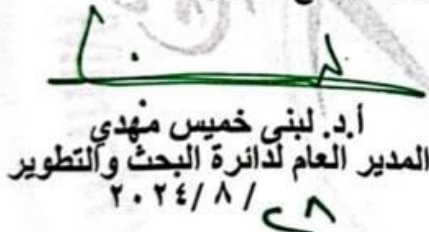 أ.د. لبنى خميس مهدي
المدير العام لدائرة البحث والتطوير
٢٠٢٤/٨/٢٨